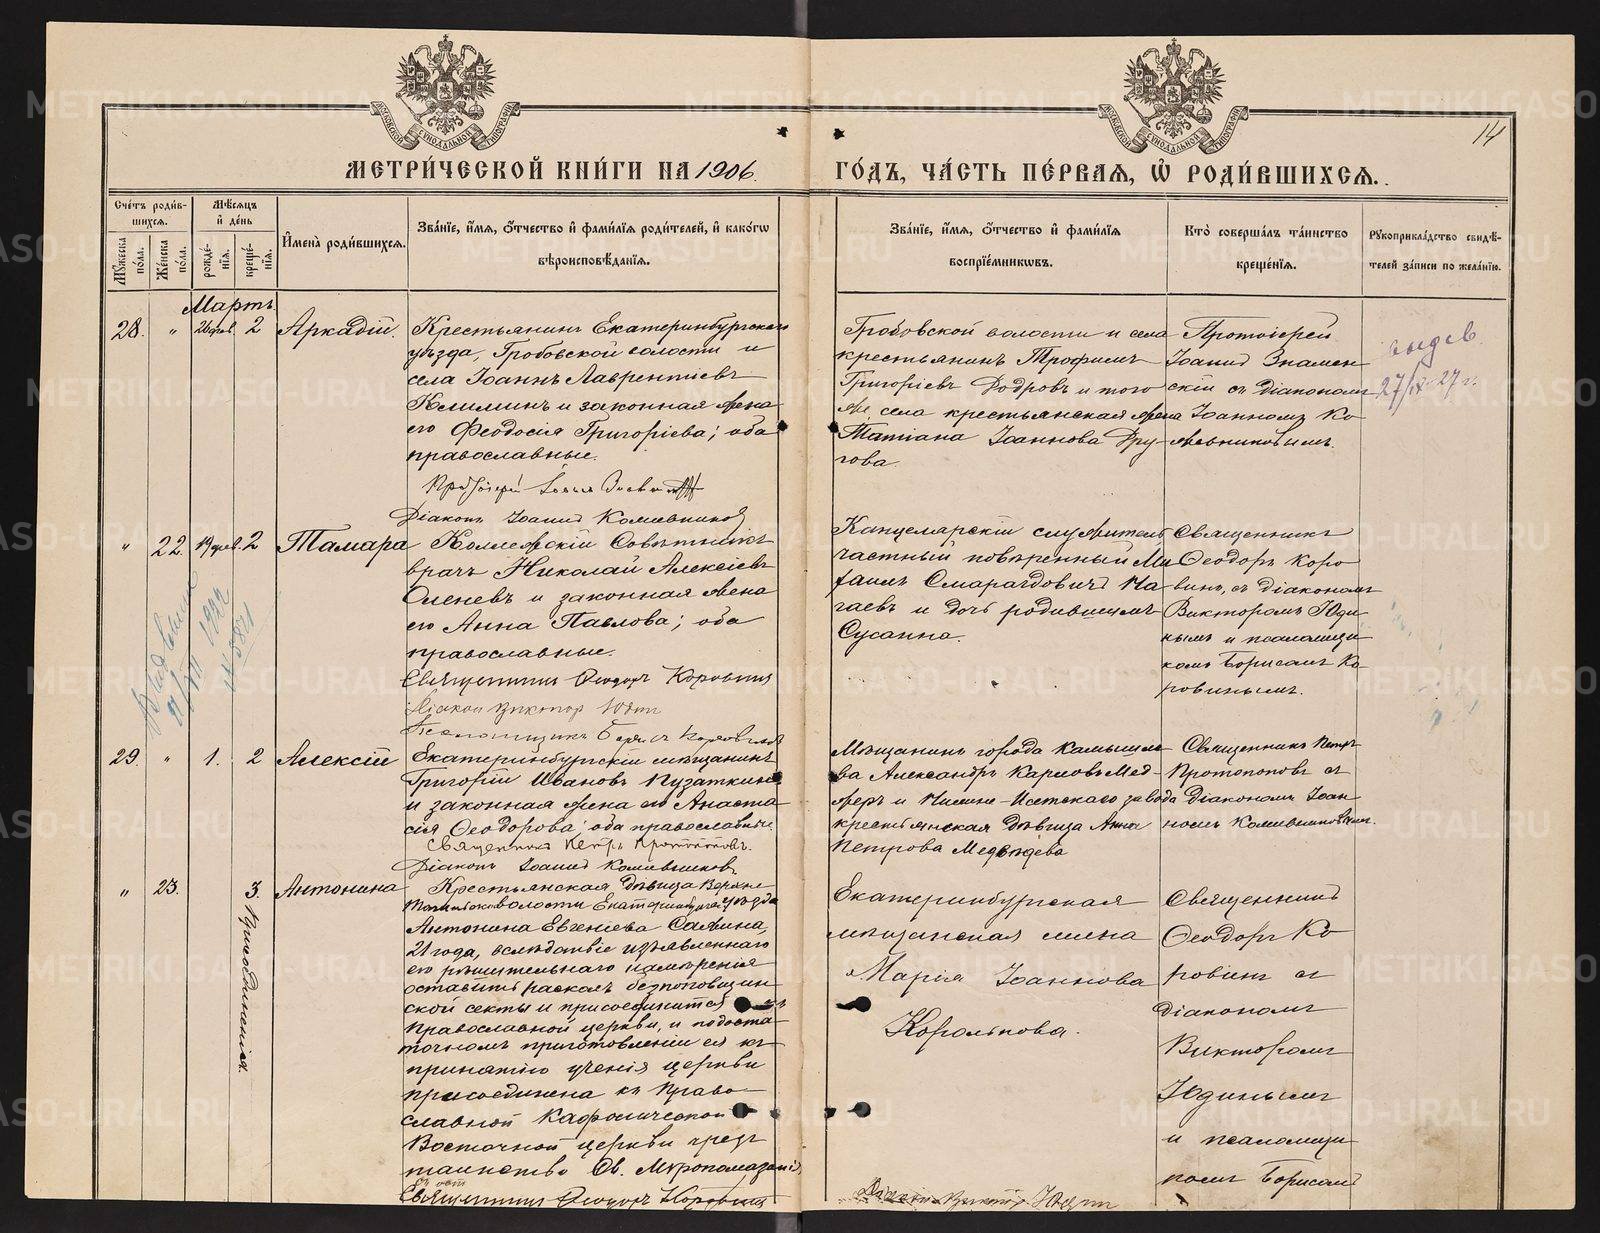 МЕТРИ́ЧЕСКОЙ КНИ́ГИ НА 1906.
ГО́ДЪ, ЧА́СТЬ ПЕ́РВАѦ, Ѡ҆ РОДИ́ВШИХСѦ.
14
Сче́тъ роди́в-
шихсѧ.
Мꙋ́жеска по́ла.
Же́нска по́ла.
Мѣ́сѧцъ
и҆ де́нь
рожде́-
нїѧ.
креще́-
нїѧ.
И҆мена̀ роди́вшихсѧ.
Зва́нїе, и҆́мѧ, ѻ҆́тчество и҆ фами́лїѧ роди́телей, и҆ како́гѡ
вѣроисповѣ́данїѧ.
Зва́нїе, и҆́мѧ, ѻ҆́тчество и҆ фами́лїѧ
воспрїе́мникѡвъ.
Кто̀ соверша́лъ та́инство
креще́нїѧ.
Рꙋкоприкла́дство свидѣ́-
телей за́писи по жела́нїю.
Мартъ
28. " 26 фев. 2 Аркадій.
Крестьянинъ Екатеринбургскаго
уѣзда, Гробовской волости и
села Іоаннъ Лаврентіевъ
и законная жена
его Феодосія Григоріева; оба
православные.
Діаконъ Іоаннъ
Гробовской волости и села
крестьянинъ Трофимъ
Григоріевъ Бодровъ и того
же села крестьянская жена
Татіана Іоаннова Дру-
гова.
Протоіерей
Іоаннъ Знамен
скій съ діакономъ
Іоанномъ Ко
жевниковымъ.
выд св.
27/IX 27 г.
" 22. 19 фев. 2 Тамара
Коллежскій Совѣтникъ
врачъ Николай Алексіевъ
Оленевъ и законная жена
его Анна Павлова; оба
православные.
Священникъ Ѳеодоръ Коровинъ
Діакон Виктор Юдин
Псаломщикъ Борисъ Коровинъ
Канцелярскій служитель
частный повѣренный Ми
хаилъ Смарагдовичъ На-
гаевъ и дочь родившихъ
Сусанна.
Священникъ
Ѳеодоръ Коро
винъ, съ діакономъ
Викторомъ Юди
нымъ и псаломщи
комъ Борисомъ Ко-
ровинымъ.
29. " 1. 2 Алексій
Екатеринбургскій мѣщанинъ
Григорій Ивановъ Пузаткинъ
и законная жена его Анаста-
сія Ѳеодорова; оба православные.
Священникъ Петръ Протопоповъ.
Діаконъ Іоаннъ
Мѣщанинъ города Камышло
ва Александръ Карповъ Мед-
и Нижне-Исетскаго завода
крестьянская дѣвица Анна
Петрова Медвѣдева
Священникъ Петръ
Протопоповъ съ
діакономъ Іоан
номъ Кожевниковымъ.
" 23. 3. Антонина
присоединенія.
Крестьянская дѣвица Верхне
волости Екатеринбургскаго уѣзда
Антонина Евгеніева
21 года, вслѣдствіе изъявленнаго
ею рѣшительнаго намѣренія
оставить расколъ безпоповщин
ской секты и присоединиться къ
Православной церкви, и подоста-
точномъ приготовленіи ея къ
принятію ученія церкви
присоединена къ Право-
славной Каѳолической
Восточной церкви чрезъ
таинство Св. Мѵропомазанія
Священникъ Ѳеодоръ Коровинъ
Екатеринбургская
мѣщанская жена
Марія Іоаннова
Королькова.
Виктор Юдин
Священникъ
Ѳеодоръ Ко
ровинъ съ
діакономъ
Викторомъ
Юдинымъ
и псаломщи
комъ Борисомъ